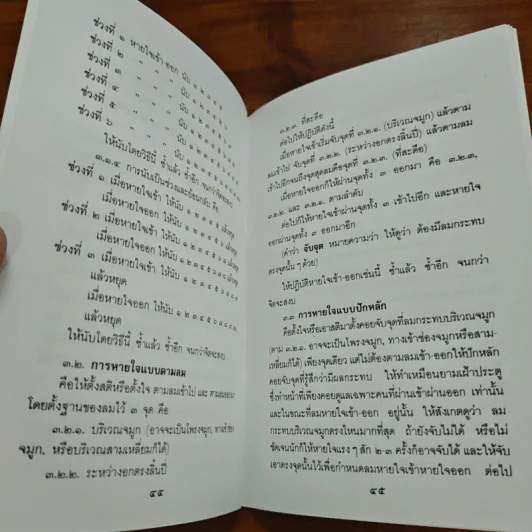 ช่วงที่ ๑ หายใจเข้า-ออก นับ ๑ ๒ ๓ ๔ ๕
ช่วงที่ ๒ " " " นับ ๑ ๒ ๓ ๔ ๕ ๖
ช่วงที่ ๓ " " " นับ ๑ ๒ ๓ ๔ ๕ ๖ ๗
ช่วงที่ ๔ " " " นับ ๑ ๒ ๓ ๔ ๕ ๖ ๗ ๘
ช่วงที่ ๕ " " " นับ
ช่วงที่ ๖ " " " นับ
ให้นับโดยวิธีนี้ ซ้ำแล้ว ซ้ำอีก จนกว่าจิตจะสงบ
๓.๑.๔ การนับเป็นช่วงและย้อนกลับ คือ
ช่วงที่ ๑ เมื่อหายใจเข้า ให้นับ ๑ ๒ ๓ ๔ ๕ แล้วหยุด
เมื่อหายใจออก ให้นับ ๑ ๒ ๓ ๔ ๕ แล้วหยุด
ช่วงที่ ๒ เมื่อหายใจเข้า ให้นับ ๑ ๒ ๓ ๔ ๕ ๖ แล้วหยุด
เมื่อหายใจออก ให้นับ ๑ ๒ ๓ ๔ ๕ ๖ แล้วหยุด
ช่วงที่ ๓ เมื่อหายใจเข้า ให้นับ ๑ ๒ ๓ ๔ ๕ ๖ ๗
แล้วหยุด
เมื่อหายใจออก ให้นับ ๑ ๒ ๓ ๔ ๕ ๖ ๗
แล้วหยุด
ให้นับโดยวิธีนี้ ซ้ำแล้ว ซ้ำอีก จนกว่าจิตจะสงบ
๓.๒. การหายใจแบบตามลม
คือให้ตั้งสติหรือตั้งใจ ตามลมเข้าไป และ ตามลมออกมา
โดยตั้งฐานของลมไว้ ๓ จุด คือ
๓.๒.๑. บริเวณจมูก (อาจจะเป็นโพรงจมูก, ทางเข้าช่อง
จมูก, หรือบริเวณสามเหลี่ยมก็ได้)
๓.๒.๒. ระหว่างอกตรงลิ้นปี่
๔๔
๓.๒.๓. ที่สะดือ
ต่อไปให้ปฏิบัติดังนี้
เมื่อหายใจเข้าเริ่มจับจุดที่ ๓.๒.๑. (บริเวณจมูก) แล้วตาม
ลมเข้าไป จับจุดที่ ๓.๒.๒. (ระหว่างอกตรงลิ้นปี่) แล้วตามลม
เข้าไปอีกจนถึงจุดสุดลมคือจุดที่ ๓.๒.๓. (ที่สะดือ)
เมื่อหายใจออกก็ให้ผ่านจุดทั้ง ๓ ออกมา คือ ๓.๒.๓.
๓.๒.๒. และ ๓.๒.๑. ตามลำดับ
ต่อไปก็ให้หายใจเข้าผ่านจุดทั้ง ๓ เข้าไปอีก และหายใจ
ออกผ่านจุดทั้ง ๓ ออกมาอีก
(คำว่า จับจุด หมายความว่า ให้ดูว่า ต้องมีลมกระทบ
ตรงจุดนั้น ๆ ด้วย)
ให้ปฏิบัติหายใจเข้า-ออกเช่นนี้ ซ้ำแล้ว ซ้ำอีก จนกว่า
จิตจะสงบ
๓.๓ การหายใจแบบปักหลัก
คือตั้งใจหรือเอาสติมาตั้งคอยจับจุดที่ลมกระทบบริเวณจมูก
(ตาม ๓.๒.๑. อาจจะเป็นโพรงจมูก, ทางเข้าช่องจมูกหรือสาม-
เหลี่ยมก็ได้) เพียงจุดเดียว แต่ไม่ต้องตามลมเข้า-ออกให้ปักหลัก
คอยจับจุดที่รู้สึกว่ามีผลกระทบ ให้ทำเหมือนยามเฝ้าประตู
ซึ่งทำหน้าที่เพียงคอยดูแลเฉพาะคนที่ผ่านเข้าผ่านออก เท่านั้น
และในขณะที่ลมหายใจเข้า-ออก อยู่นั้น ให้สังเกตดูว่า ลม
กระทบบริเวณจมูกตรงไหนมากที่สุด ถ้ายังจับไม่ได้ หรือไม่
ชัดเจนนักก็ให้หายใจแรง ๆ สัก ๒-๓ ครั้งก็อาจจับได้ และให้จับ
เอาตรงจุดนั้นไว้เพื่อกำหนดลมหายใจเข้าหายใจออก ต่อไป
๔๕